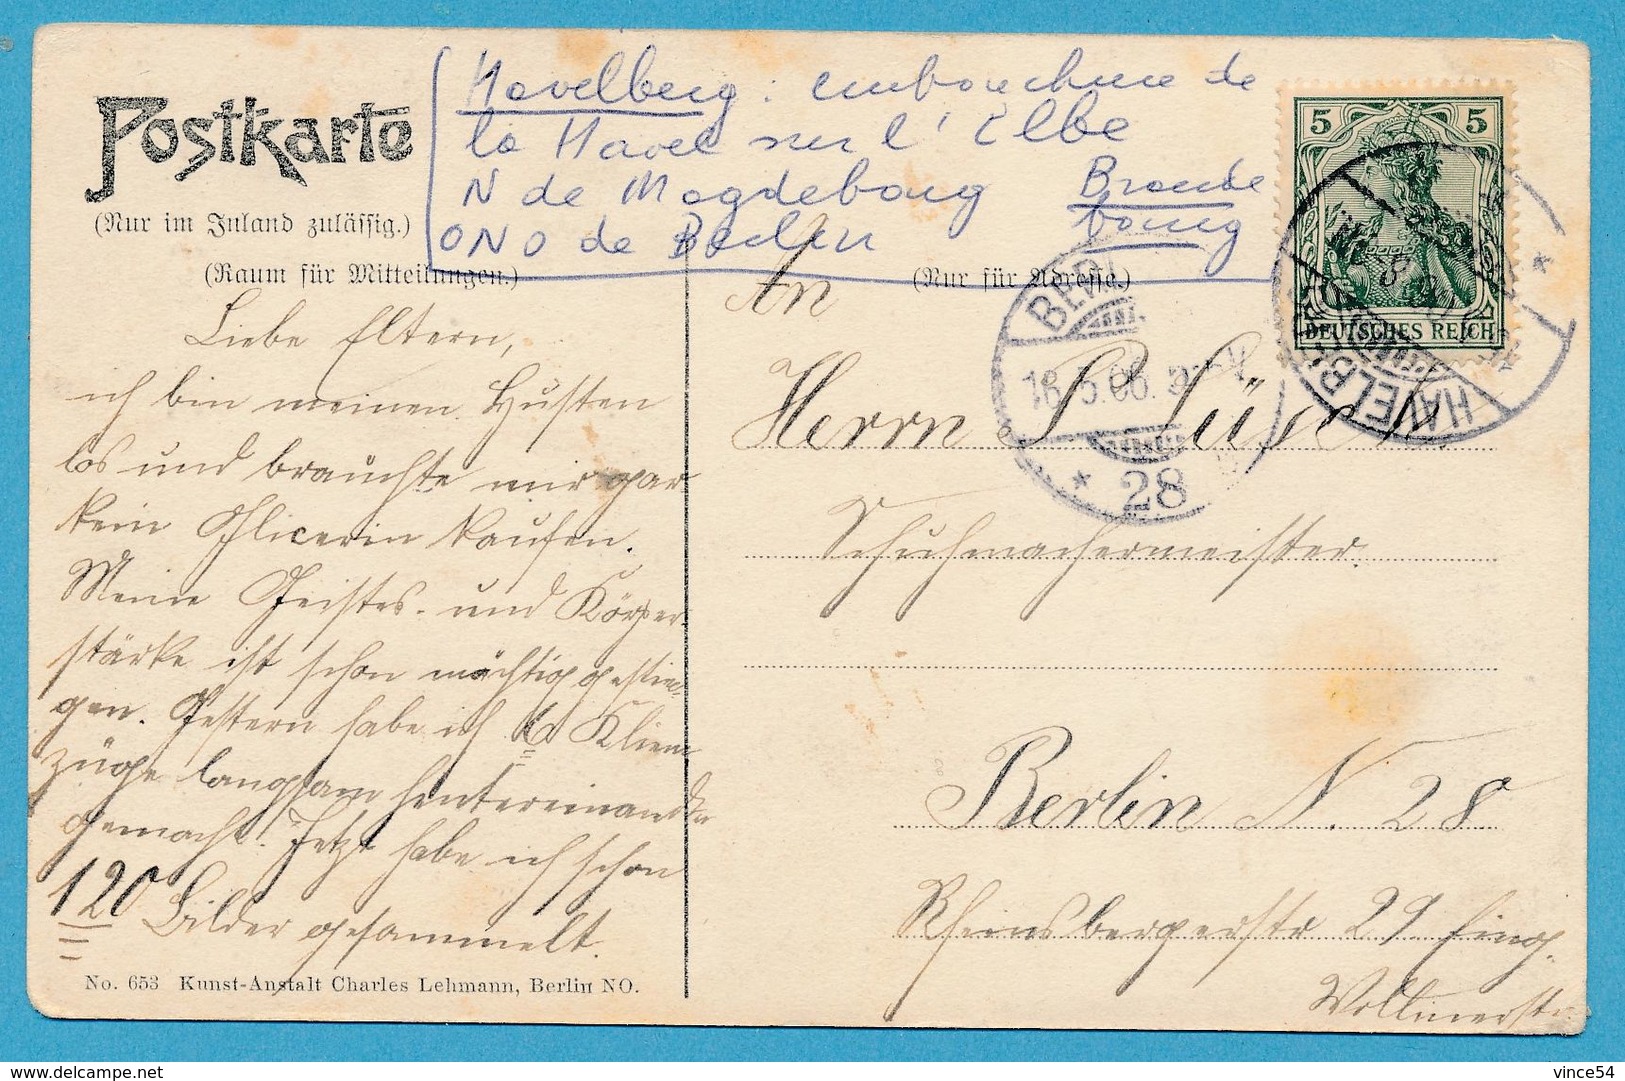 Postkarte
(Nur im Inland zulässig.)
(Raum für Mitteilungen.)
Havelberg : embouchure de
la Havel sur l'Elbe
N de Magdeboug Brande
bourg
ONO de Berlin
Liebe Eltern,
ich bin meinen Husten
los und brauchte mir gar
kein Glicerin kaufen.
Meine Geistes- und Körper
stärke ist schon mächtig gestie-
gen. Gestern habe ich 16 Klimm
züge langsam hintereinander
gemacht. Jetzt habe ich schon
120 Bilder gesammelt.
No. 653 Kunst-Anstalt Charles Lehmann, Berlin NO.
(Nur für Adresse.)
An
Herrn P. Lüsch
Schuhmachermeister.
Berlin N. 28
Rheinsbergerstr 29 Eing.
5 5
DEUTSCHES REICH
HAVELBERG
BERLIN
18.5.06.
* 28
vince54